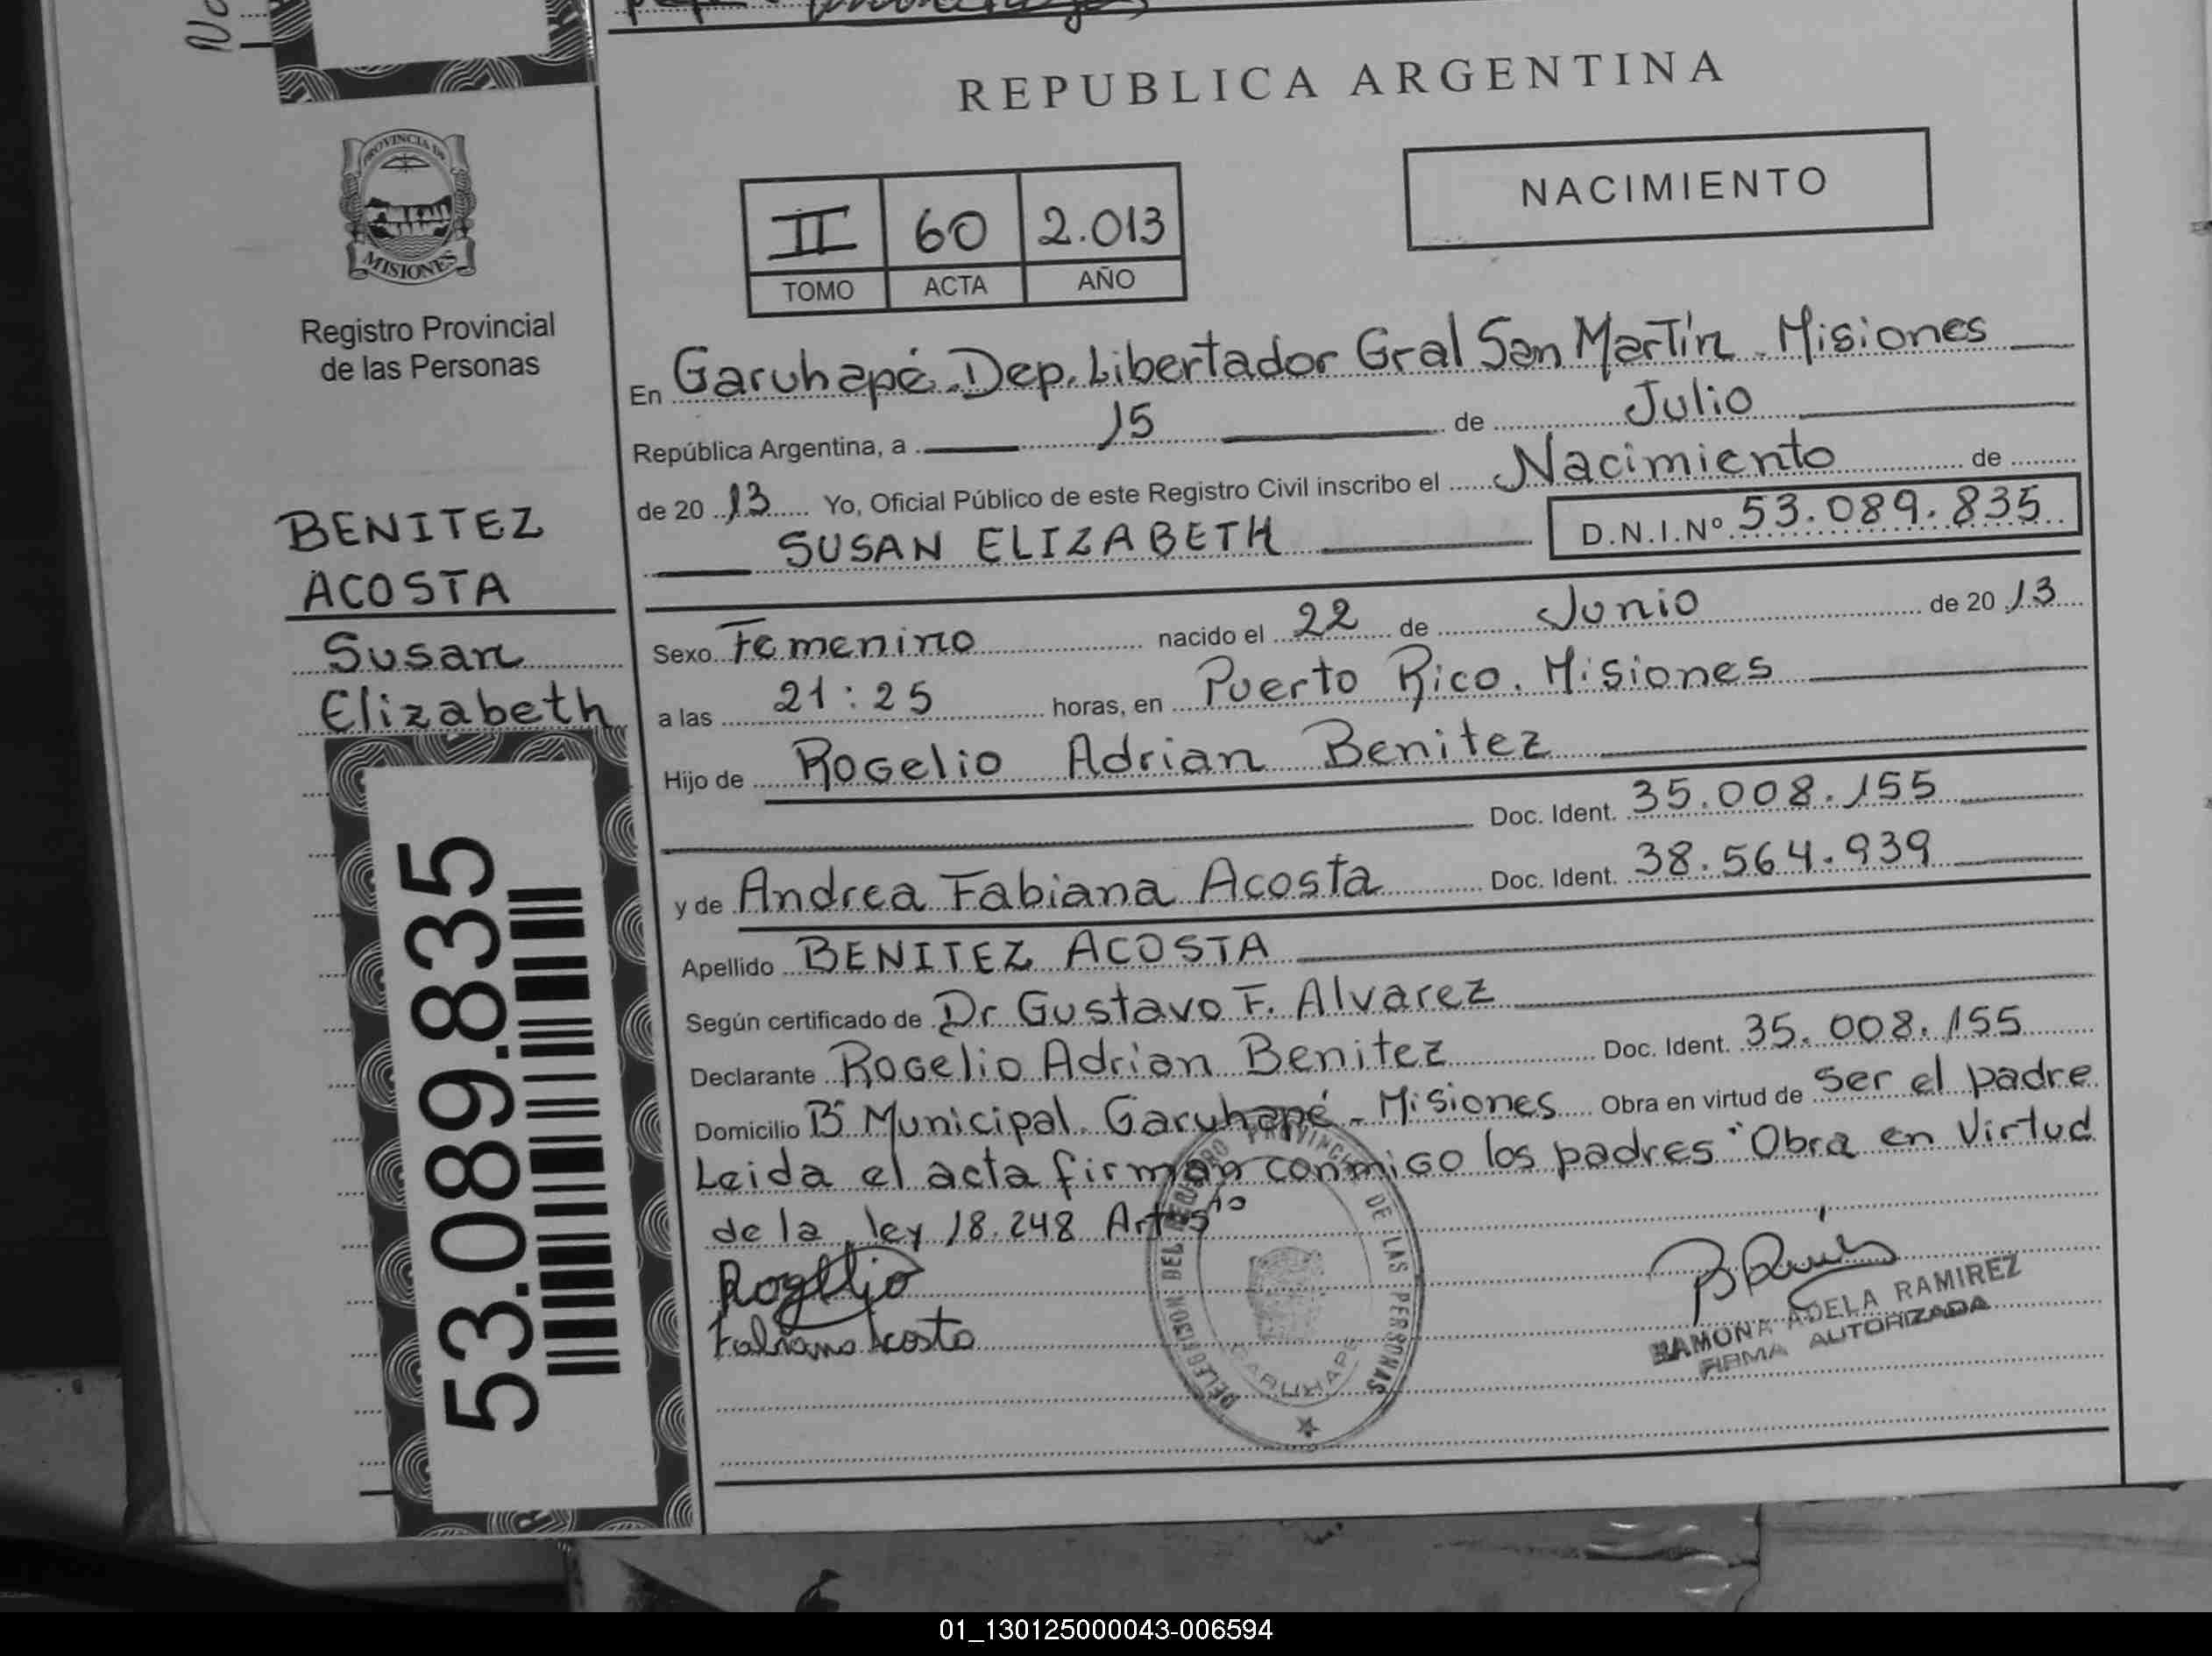 REPUBLICA ARGENTINA
PROVINCIA DE
MISIONES
Registro Provincial
de las Personas
BENITEZ
ACOSTA
Susan
Elizabeth
53.089.835
NACIMIENTO
II 60 2.013
TOMO ACTA AÑO
En Garuhapé. Dep. Libertador Gral San Martín. Misiones
República Argentina, a 15 de Julio
de 20 13 Yo, Oficial Público de este Registro Civil inscribo el Nacimiento de
SUSAN ELIZABETH D.N.I.Nº 53.089.835
Sexo Femenino nacido el 22 de Junio de 20 13
a las 21:25 horas, en Puerto Rico. Misiones
Hijo de Rogelio Adrian Benitez
Doc. Ident. 35.008.155
y de Andrea Fabiana Acosta Doc. Ident. 38.564.939
Apellido BENITEZ ACOSTA
Según certificado de Dr Gustavo F. Alvarez
Declarante Rogelio Adrian Benitez Doc. Ident. 35.008.155
Domicilio Bº Municipal. Garuhapé - Misiones Obra en virtud de ser el padre
Leida el acta firman conmigo los padres "Obra en Virtud
de la ley 18.248 Art
Rogelio
Fabiana Acosta
DELEGACION DEL REGISTRO PROVINCIAL DE LAS PERSONAS
GARUHAPE
RAMONA ADELA RAMIREZ
FIRMA AUTORIZADA
01_130125000043-006594